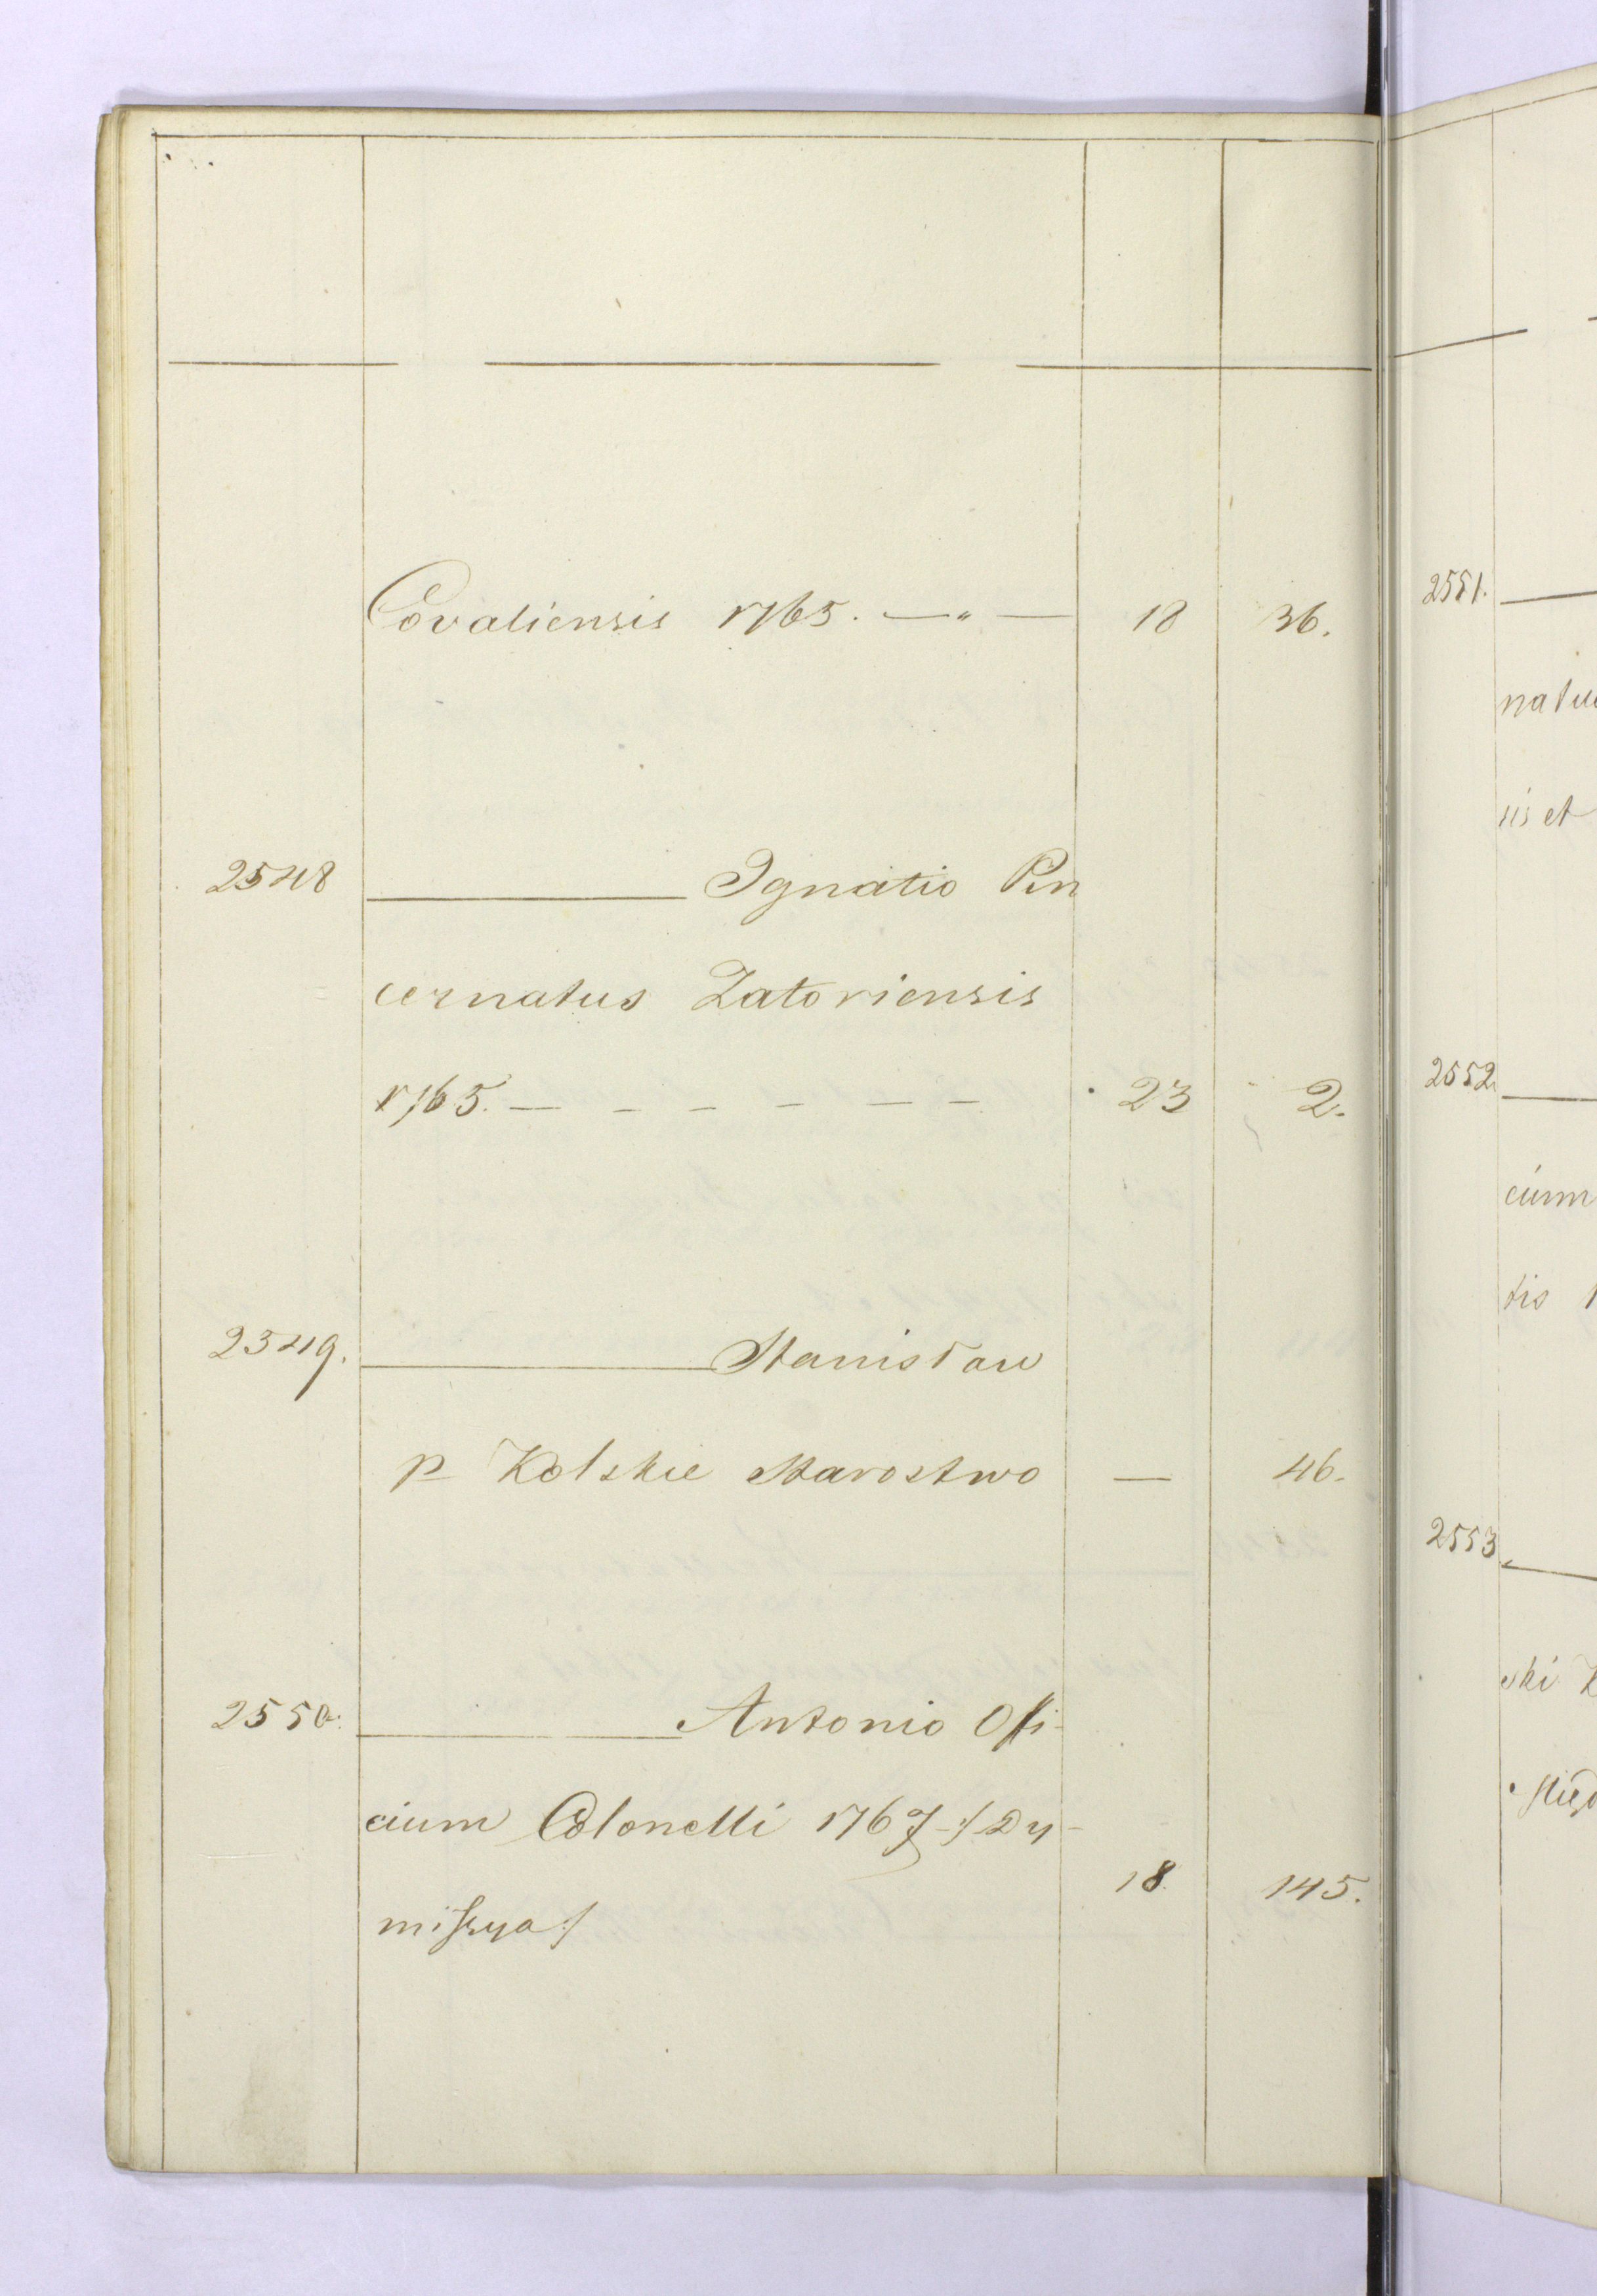 Covaliensis 1765. —„— 18 36.
2548 ——— Ignatio Pin
cernatus Zatoriensis
1765. — — — — — — 23 2.
2549. ——— Stanisław
p Kolskie Starostwo — 46.
2550. ——— Antonio Offi-
cium Colonelli 1767 /: Dy-
missya :/ 18. 145.
2551. —
natu
sis et
2552. —
cium
tis 1
2553. —
ski